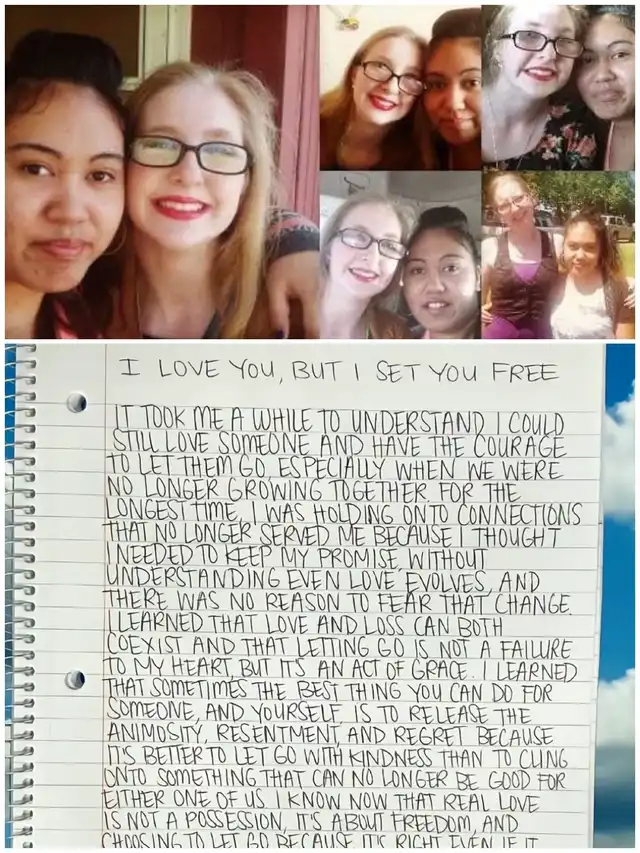 I LOVE YOU, BUT I SET YOU FREE
IT TOOK ME A WHILE TO UNDERSTAND I COULD
STILL LOVE SOMEONE AND HAVE THE COURAGE
TO LET THEM GO, ESPECIALLY WHEN WE WERE
NO LONGER GROWING TOGETHER. FOR THE
LONGEST TIME, I WAS HOLDING ONTO CONNECTIONS
THAT NO LONGER SERVED ME BECAUSE I THOUGHT
I NEEDED TO KEEP MY PROMISE, WITHOUT
UNDERSTANDING EVEN LOVE EVOLVES, AND
THERE WAS NO REASON TO FEAR THAT CHANGE.
I LEARNED THAT LOVE AND LOSS CAN BOTH
COEXIST AND THAT LETTING GO IS NOT A FAILURE
TO MY HEART, BUT IT'S AN ACT OF GRACE. I LEARNED
THAT SOMETIMES THE BEST THING YOU CAN DO FOR
SOMEONE, AND YOURSELF, IS TO RELEASE THE
ANIMOSITY, RESENTMENT, AND REGRET BECAUSE
IT'S BETTER TO LET GO WITH KINDNESS THAN TO CLING
ONTO SOMETHING THAT CAN NO LONGER BE GOOD FOR
EITHER ONE OF US. I KNOW NOW THAT REAL LOVE
IS NOT A POSSESSION, IT'S ABOUT FREEDOM, AND
CHOOSING TO LET GO BECAUSE IT'S RIGHT EVEN IF IT